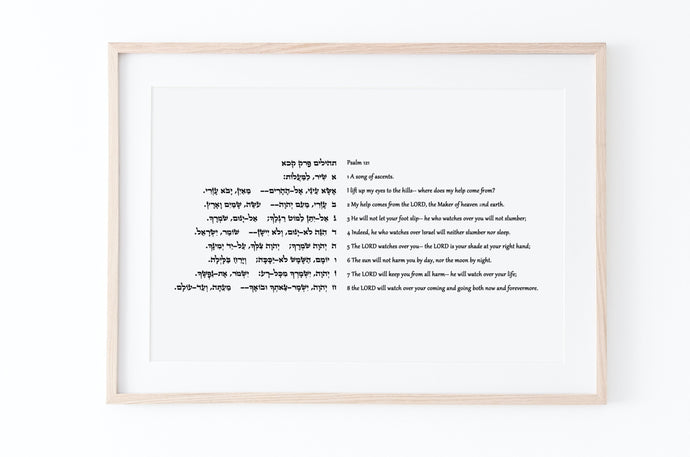 תהילים פרק קכא
א שִׁיר, לַמַּעֲלוֹת:
אֶשָּׂא עֵינַי, אֶל-הֶהָרִים-- מֵאַיִן, יָבֹא עֶזְרִי.
ב עֶזְרִי, מֵעִם יְהוָה-- עֹשֵׂה, שָׁמַיִם וָאָרֶץ.
ג אַל-יִתֵּן לַמּוֹט רַגְלֶךָ; אַל-יָנוּם, שֹׁמְרֶךָ.
ד הִנֵּה לֹא-יָנוּם, וְלֹא יִישָׁן-- שׁוֹמֵר, יִשְׂרָאֵל.
ה יְהוָה שֹׁמְרֶךָ; יְהוָה צִלְּךָ, עַל-יַד יְמִינֶךָ.
ו יוֹמָם, הַשֶּׁמֶשׁ לֹא-יַכֶּכָּה; וְיָרֵחַ בַּלָּיְלָה.
ז יְהוָה, יִשְׁמָרְךָ מִכָּל-רָע: יִשְׁמֹר, אֶת-נַפְשֶׁךָ.
ח יְהוָה, יִשְׁמָר-צֵאתְךָ וּבוֹאֶךָ-- מֵעַתָּה, וְעַד-עוֹלָם.
Psalm 121
1 A song of ascents.
I lift up my eyes to the hills-- where does my help come from?
2 My help comes from the LORD, the Maker of heaven and earth.
3 He will not let your foot slip-- he who watches over you will not slumber;
4 Indeed, he who watches over Israel will neither slumber nor sleep.
5 The LORD watches over you-- the LORD is your shade at your right hand;
6 The sun will not harm you by day, nor the moon by night.
7 The LORD will keep you from all harm-- he will watch over your life;
8 the LORD will watch over your coming and going both now and forevermore.